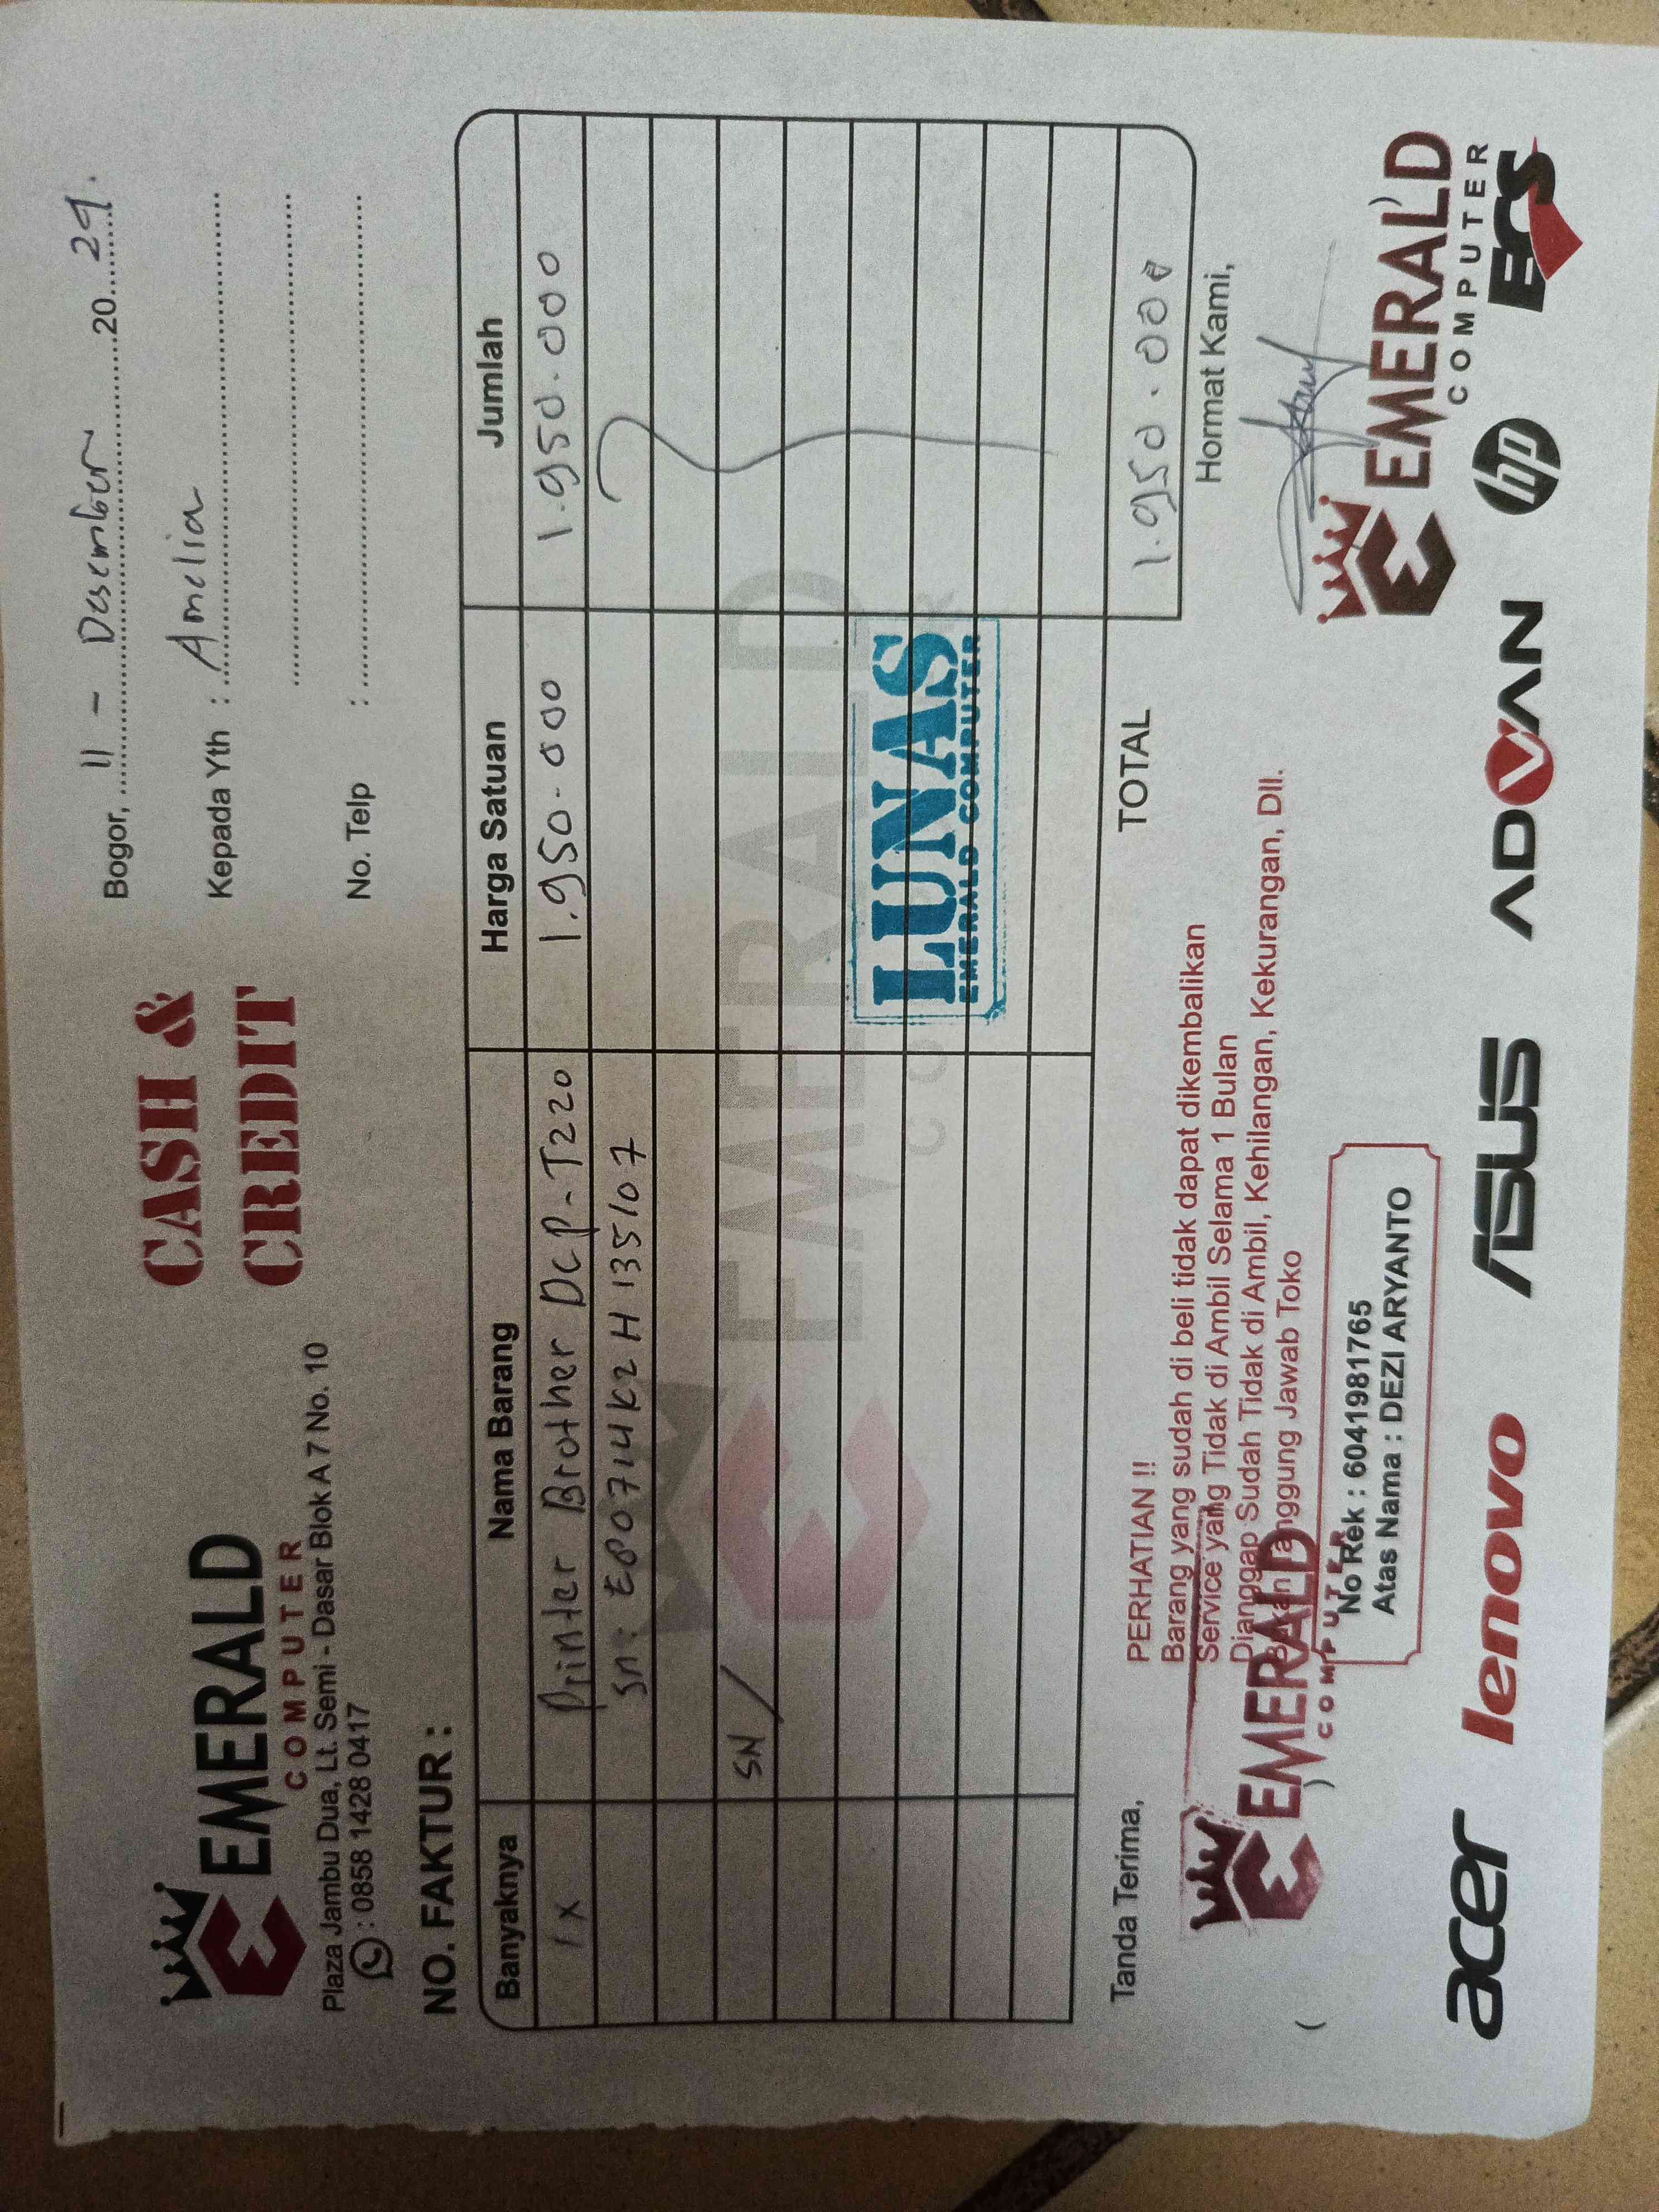 EMERALD
COMPUTER
Plaza Jambu Dua, Lt. Semi - Dasar Blok A 7 No. 10
: 0858 1428 0417
CASH &
CREDIT
Bogor, 11 - Desember 20 24.
Kepada Yth : Amelia
No. Telp :
NO. FAKTUR :
Banyaknya Nama Barang Harga Satuan Jumlah
1x Printer Brother DCP-T220 1.950.000 1.950.000
Sn: E80714K2H135107
SN
EMERALD
LUNAS
EMERALD COMPUTER
TOTAL 1.950.000
Tanda Terima,
PERHATIAN !!
Barang yang sudah di beli tidak dapat dikembalikan
Service yang Tidak di Ambil Selama 1 Bulan
Dianggap Sudah Tidak di Ambil, Kehilangan, Kekurangan, Dll.
Bukan Tanggung Jawab Toko
Hormat Kami,
EMERALD
COMPUTER
No Rek : 6041981765
Atas Nama : DEZI ARYANTO
EMERALD
COMPUTER
acer lenovo ASUS ADVAN hp ECS